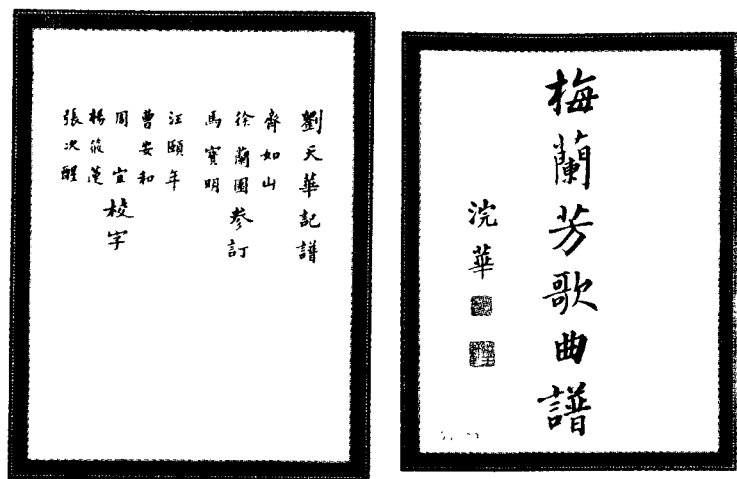 梅蘭芳歌曲譜
浣華
劉天華記譜
齊如山
徐蘭園參訂
馬寶明
汪頤年
曹安和
周宜校字
楊筱蓮
張次醒